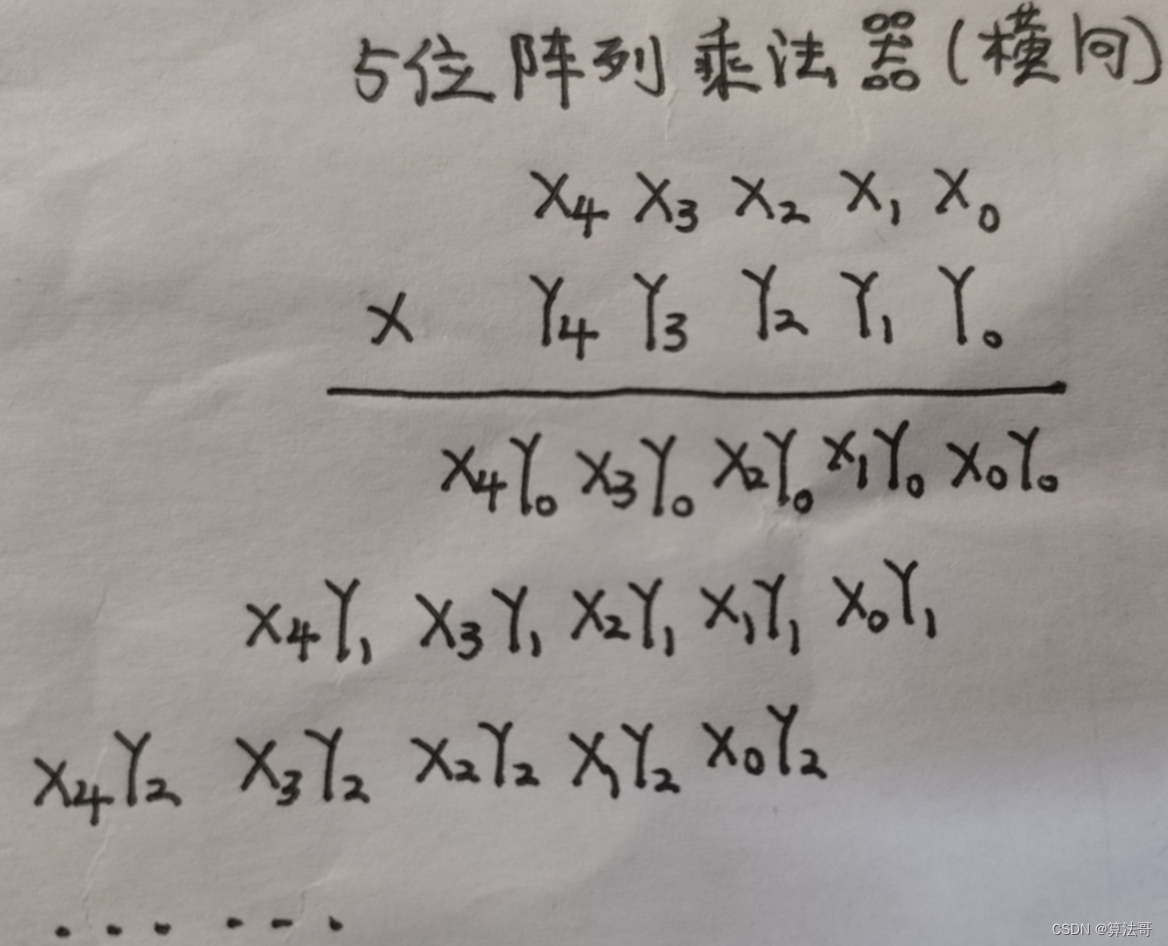 5位阵列乘法器(横向)
X₄ X₃ X₂ X₁ X₀
× Y₄ Y₃ Y₂ Y₁ Y₀
X₄Y₀ X₃Y₀ X₂Y₀ X₁Y₀ X₀Y₀
X₄Y₁ X₃Y₁ X₂Y₁ X₁Y₁ X₀Y₁
X₄Y₂ X₃Y₂ X₂Y₂ X₁Y₂ X₀Y₂
... ...
CSDN @算法哥